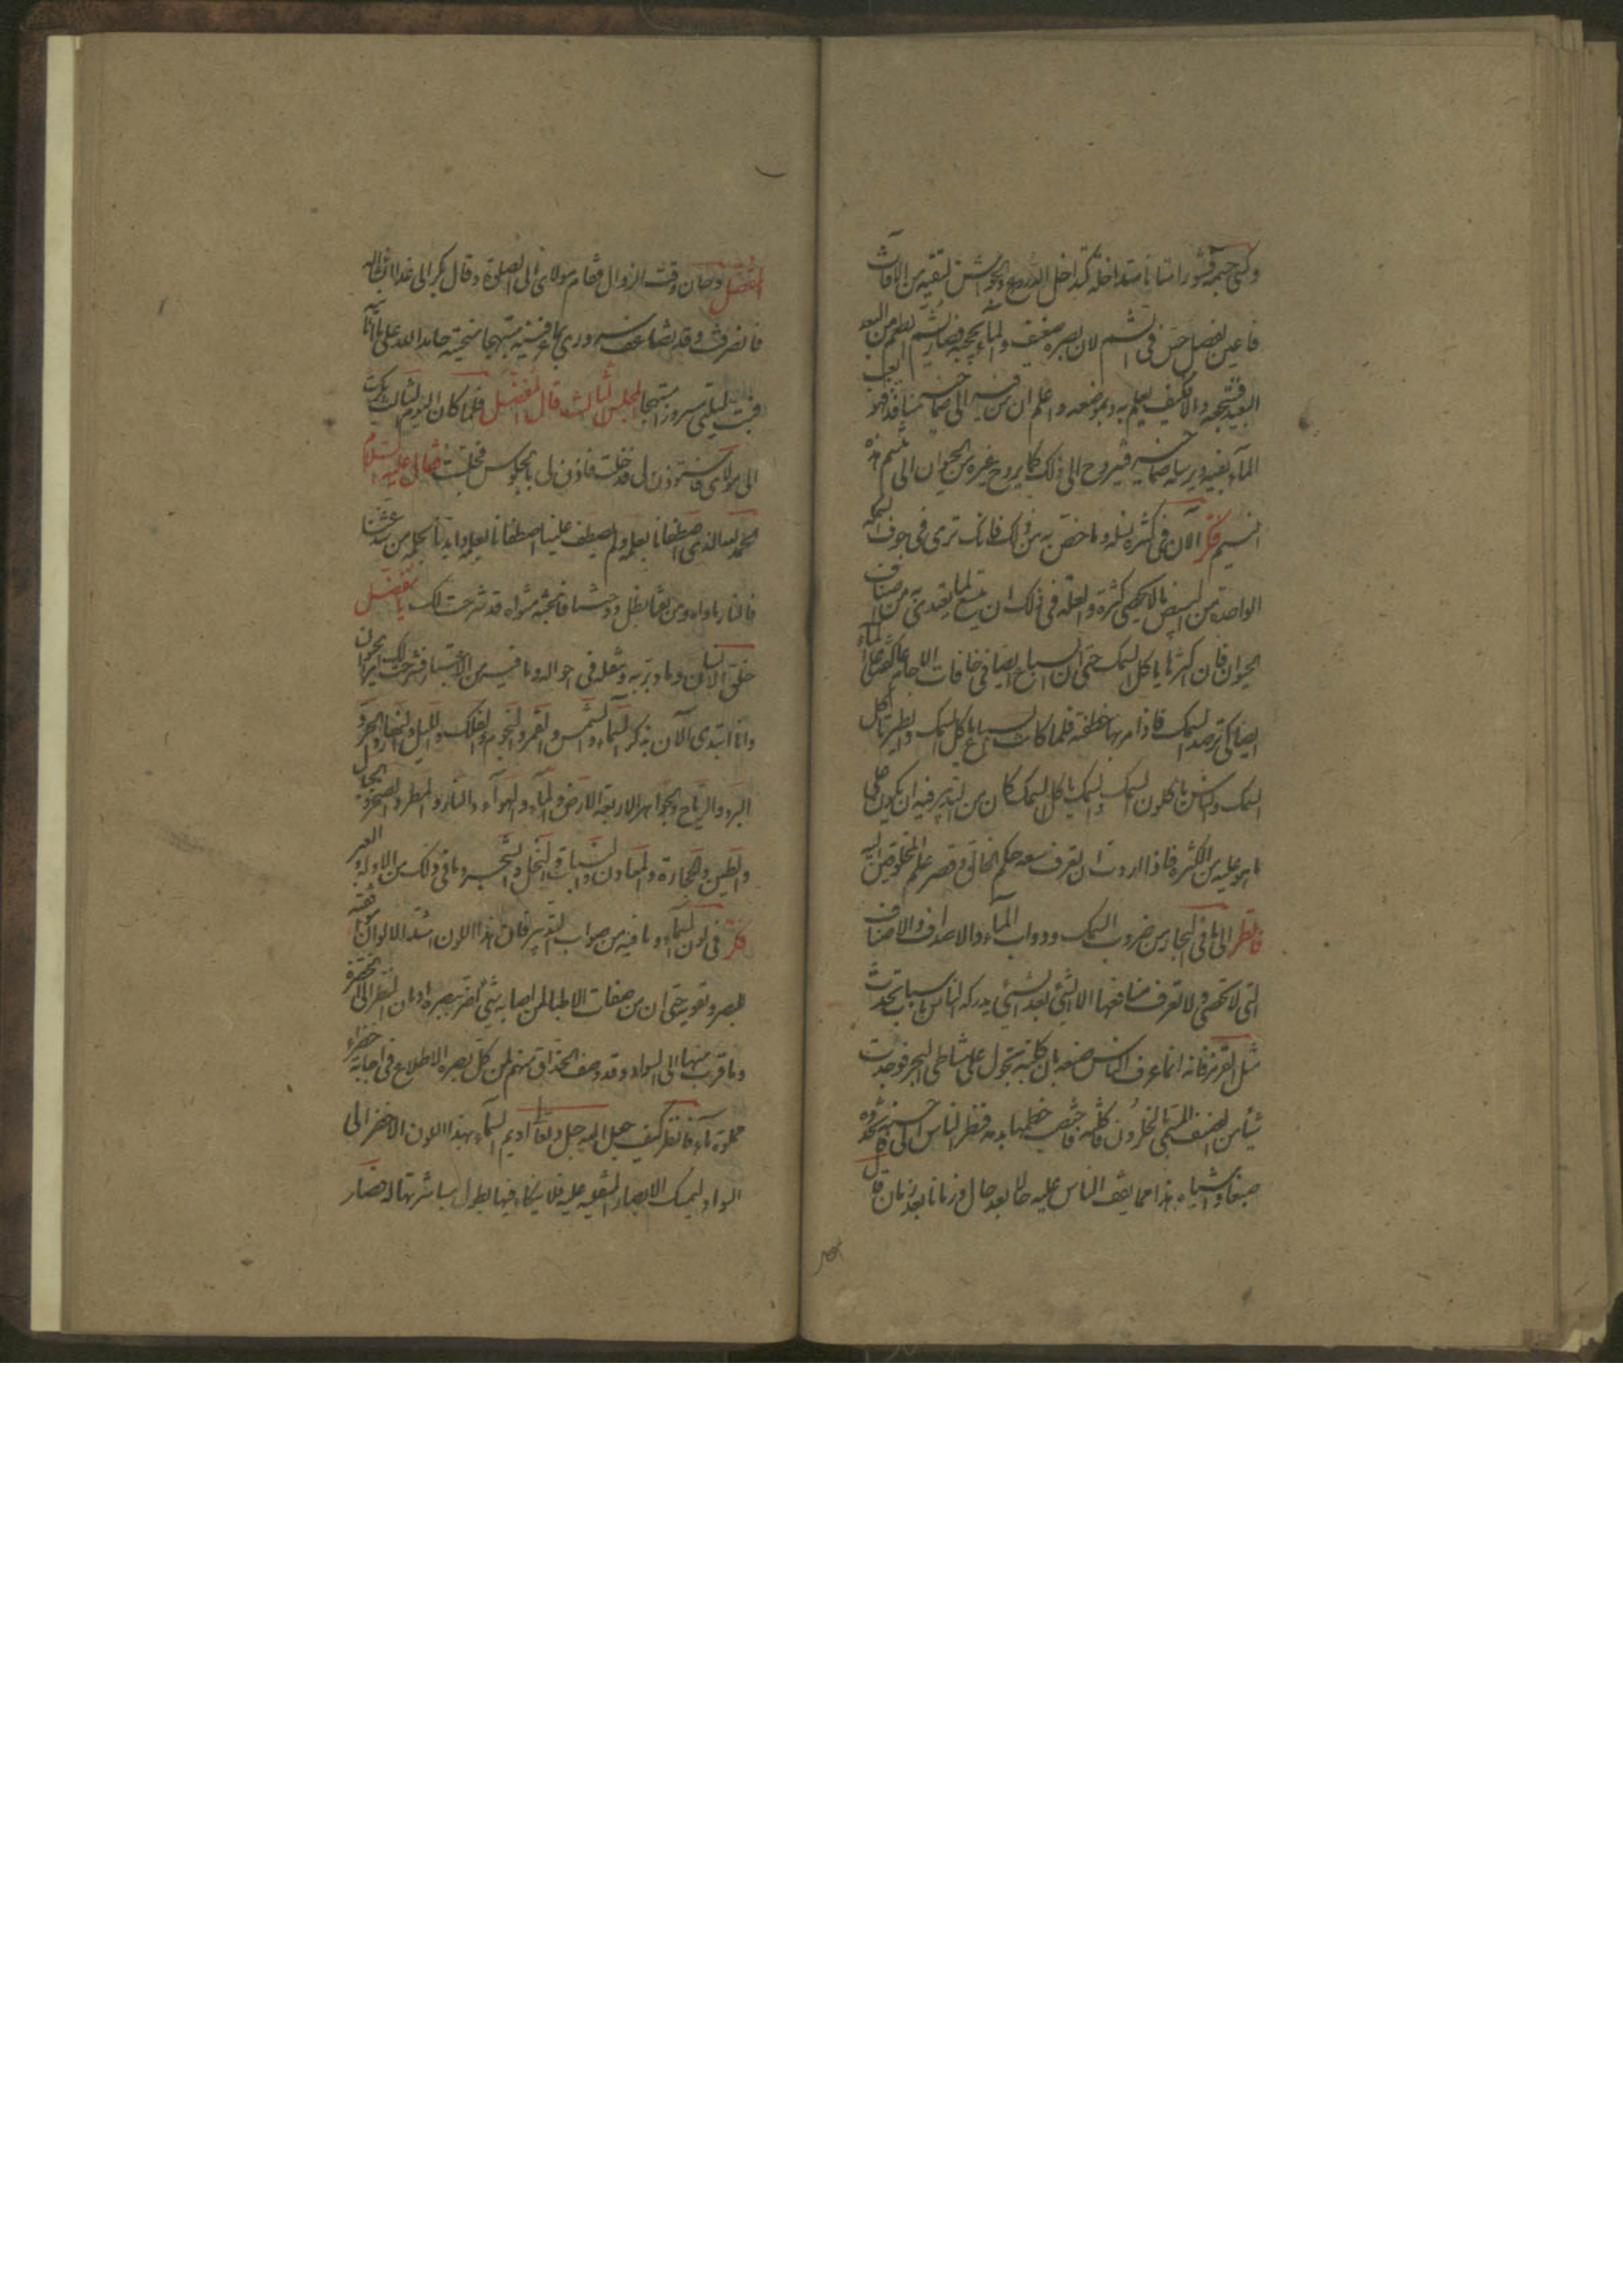 وكسي جسمه قشورا متانا متداخلة كتداخل الدروع والجواشن لتقيه من الافات
فاعين بفضل حس في الشم لان بصره ضعيف والماء يحجبه فصار يشم الطعم من البعد
البعيد فينتجعه والا فكيف يعلم به وبموضعه واعلم ان من فيه الى صماخيه منافذ فهو يعب
الماء بفيه ويرسله من صماخيه فيروح الى ذلك كما يروح غيره من الحيوان الى تنسم هذا
النسيم فكر الآن في كثرة نسله وما خص به من ذلك فانك ترى في جوف السمكة
الواحدة من البيض ما لا يحصى كثرة والعلة في ذلك ان يتسع لما يغتذي به من اصناف
الحيوان فان اكثرها ياكل السمك حتى ان السباع ايضا في حافات الاجام عاكفة على الماء
ايضا كي ترصد السمك فاذا مر بها خطفته فلما كانت السباع ياكل السمك والطير تاكل
السمك والناس ياكلون السمك والسمك ياكل السمك كان من التدبير فيه ان يكون على
ما هو عليه من الكثرة فاذا اردت ان تعرف سعة حكم الخالق وقصر علم المخلوقين
فانظر الى ما في البحار من ضروب السمك ودواب الماء والاصداف والاصناف
التي لا تحصى ولا تعرف منافعها الا الشيء بعد الشيء يدركه الناس باسباب تحدث
مثل القرمز فانه انما عرف الناس صبغه بان كلبة تجول على شاطئ البحر فوجدت
شيئا من الصنف المسمى الحلزون فاكلته فاختضب خطمها بدمه فنظر الناس الى حسنه فاتخذوه
صبغا واشباه هذا مما يقف الناس عليه حالا بعد حال وزمانا بعد زمان قال
المفضل وحان وقت الزوال فقام مولاى الى الصلوة وقال بكر الى غدا انشاء الله
فانصرفت وقد تضاعف سروري بما عرفنيه مبتهجا بما منحنيه حامدا لله على ما اتانيه
فبت ليلتي مسرورا مبتهجا المجلس الثالث قال المفضل فلما كان اليوم الثالث بكرت
الى مولاى فاستوذن لى فدخلت فاذن لى بالجلوس فجلست فقال عليه السلام
الحمد لله الذي اصطفانا بعلمه ولم يصطف علينا اصطفانا بعلمه وايدنا بحلمه من شذ عنا
فالنار ماواه ومن تفيا بظل دوحتنا فالجنة مثواه قد شرحت لك يا مفضل
خلق الانسان وما دبر به وتنقله في احواله وما فيه من الاعتبار وشرحت لك امر الحيوان
وانا ابتدى الآن بذكر السماء والشمس والقمر والنجوم والفلك والليل والنهار والحر و
البرد والرياح والجواهر الاربعة الارض والماء والهواء والنار والمطر والصخر والجبال
والطين والحجارة والمعادن والنبات والنخل والشجر وما في ذلك من الادلة والعبر
فكر في لون السماء وما فيه من صواب التدبير فان هذا اللون اشد الالوان موافقة
للبصر وتقوية حتى ان من صفات الاطبا لمن اصابه شيء اضر ببصره ادمان النظر الى الخضرة
وما قرب منها الى السواد وقد وصف الحذاق منهم لمن كل بصره الاطلاع في اجانة خضراء
مملوة ماء فانظر كيف جعل الله جل وتعالى اديم السماء بهذا اللون الاخضر الى
السواد ليمسك الابصار المنقلبة عليه فلا ينكاء فيها بطول مباشرتها له فصار